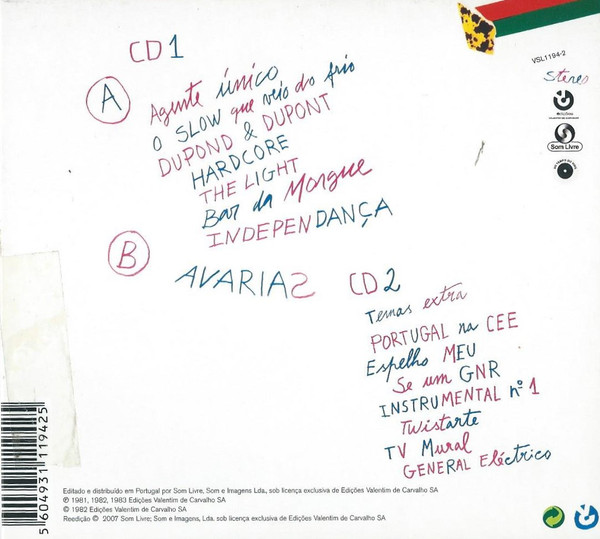 CD 1
VSL1194-2
Stereo
A
Agente único
O SLOW que veio do frio
DUPOND & DUPONT
HARDCORE
THE LIGHT
Bar da Morgue
INDEPENDANÇA
Som Livre
B
AVARIAS
CD 2
Temas extra
PORTUGAL na CEE
Espelho MEU
Se um GNR
INSTRUMENTAL nº 1
Twistarte
TV Mural
GENERAL Eléctrico
5 604931 119425
Editado e distribuído em Portugal por Som Livre, Som e Imagens Lda., sob licença exclusiva de Edições Valentim de Carvalho SA
℗ 1981, 1982, 1983 Edições Valentim de Carvalho SA
© 1982 Edições Valentim de Carvalho SA
Reedição © 2007 Som Livre; Som e Imagens, Lda. sob licença exclusiva de Edições Valentim de Carvalho SA